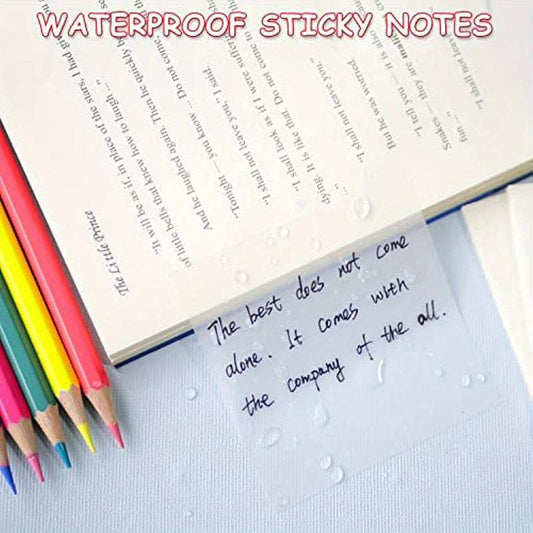 WATERPROOF STICKY NOTES
The Little Prince
"It will be as if, in place of the stars, I had given
of little bells that knew how to laugh ..."
And he laughed again. Then he quickly
"Tonight — you know ... Do not come
"I shall not leave you," I said.
"I shall look as if I were
dying. It is like that. Do not come to
"I shall not leave you."
But he was worried.
"I tell you — it is also
Snakes — they are
fun ..."
"I shall not leave
The best does not come
alone. It comes with
the company of the all.